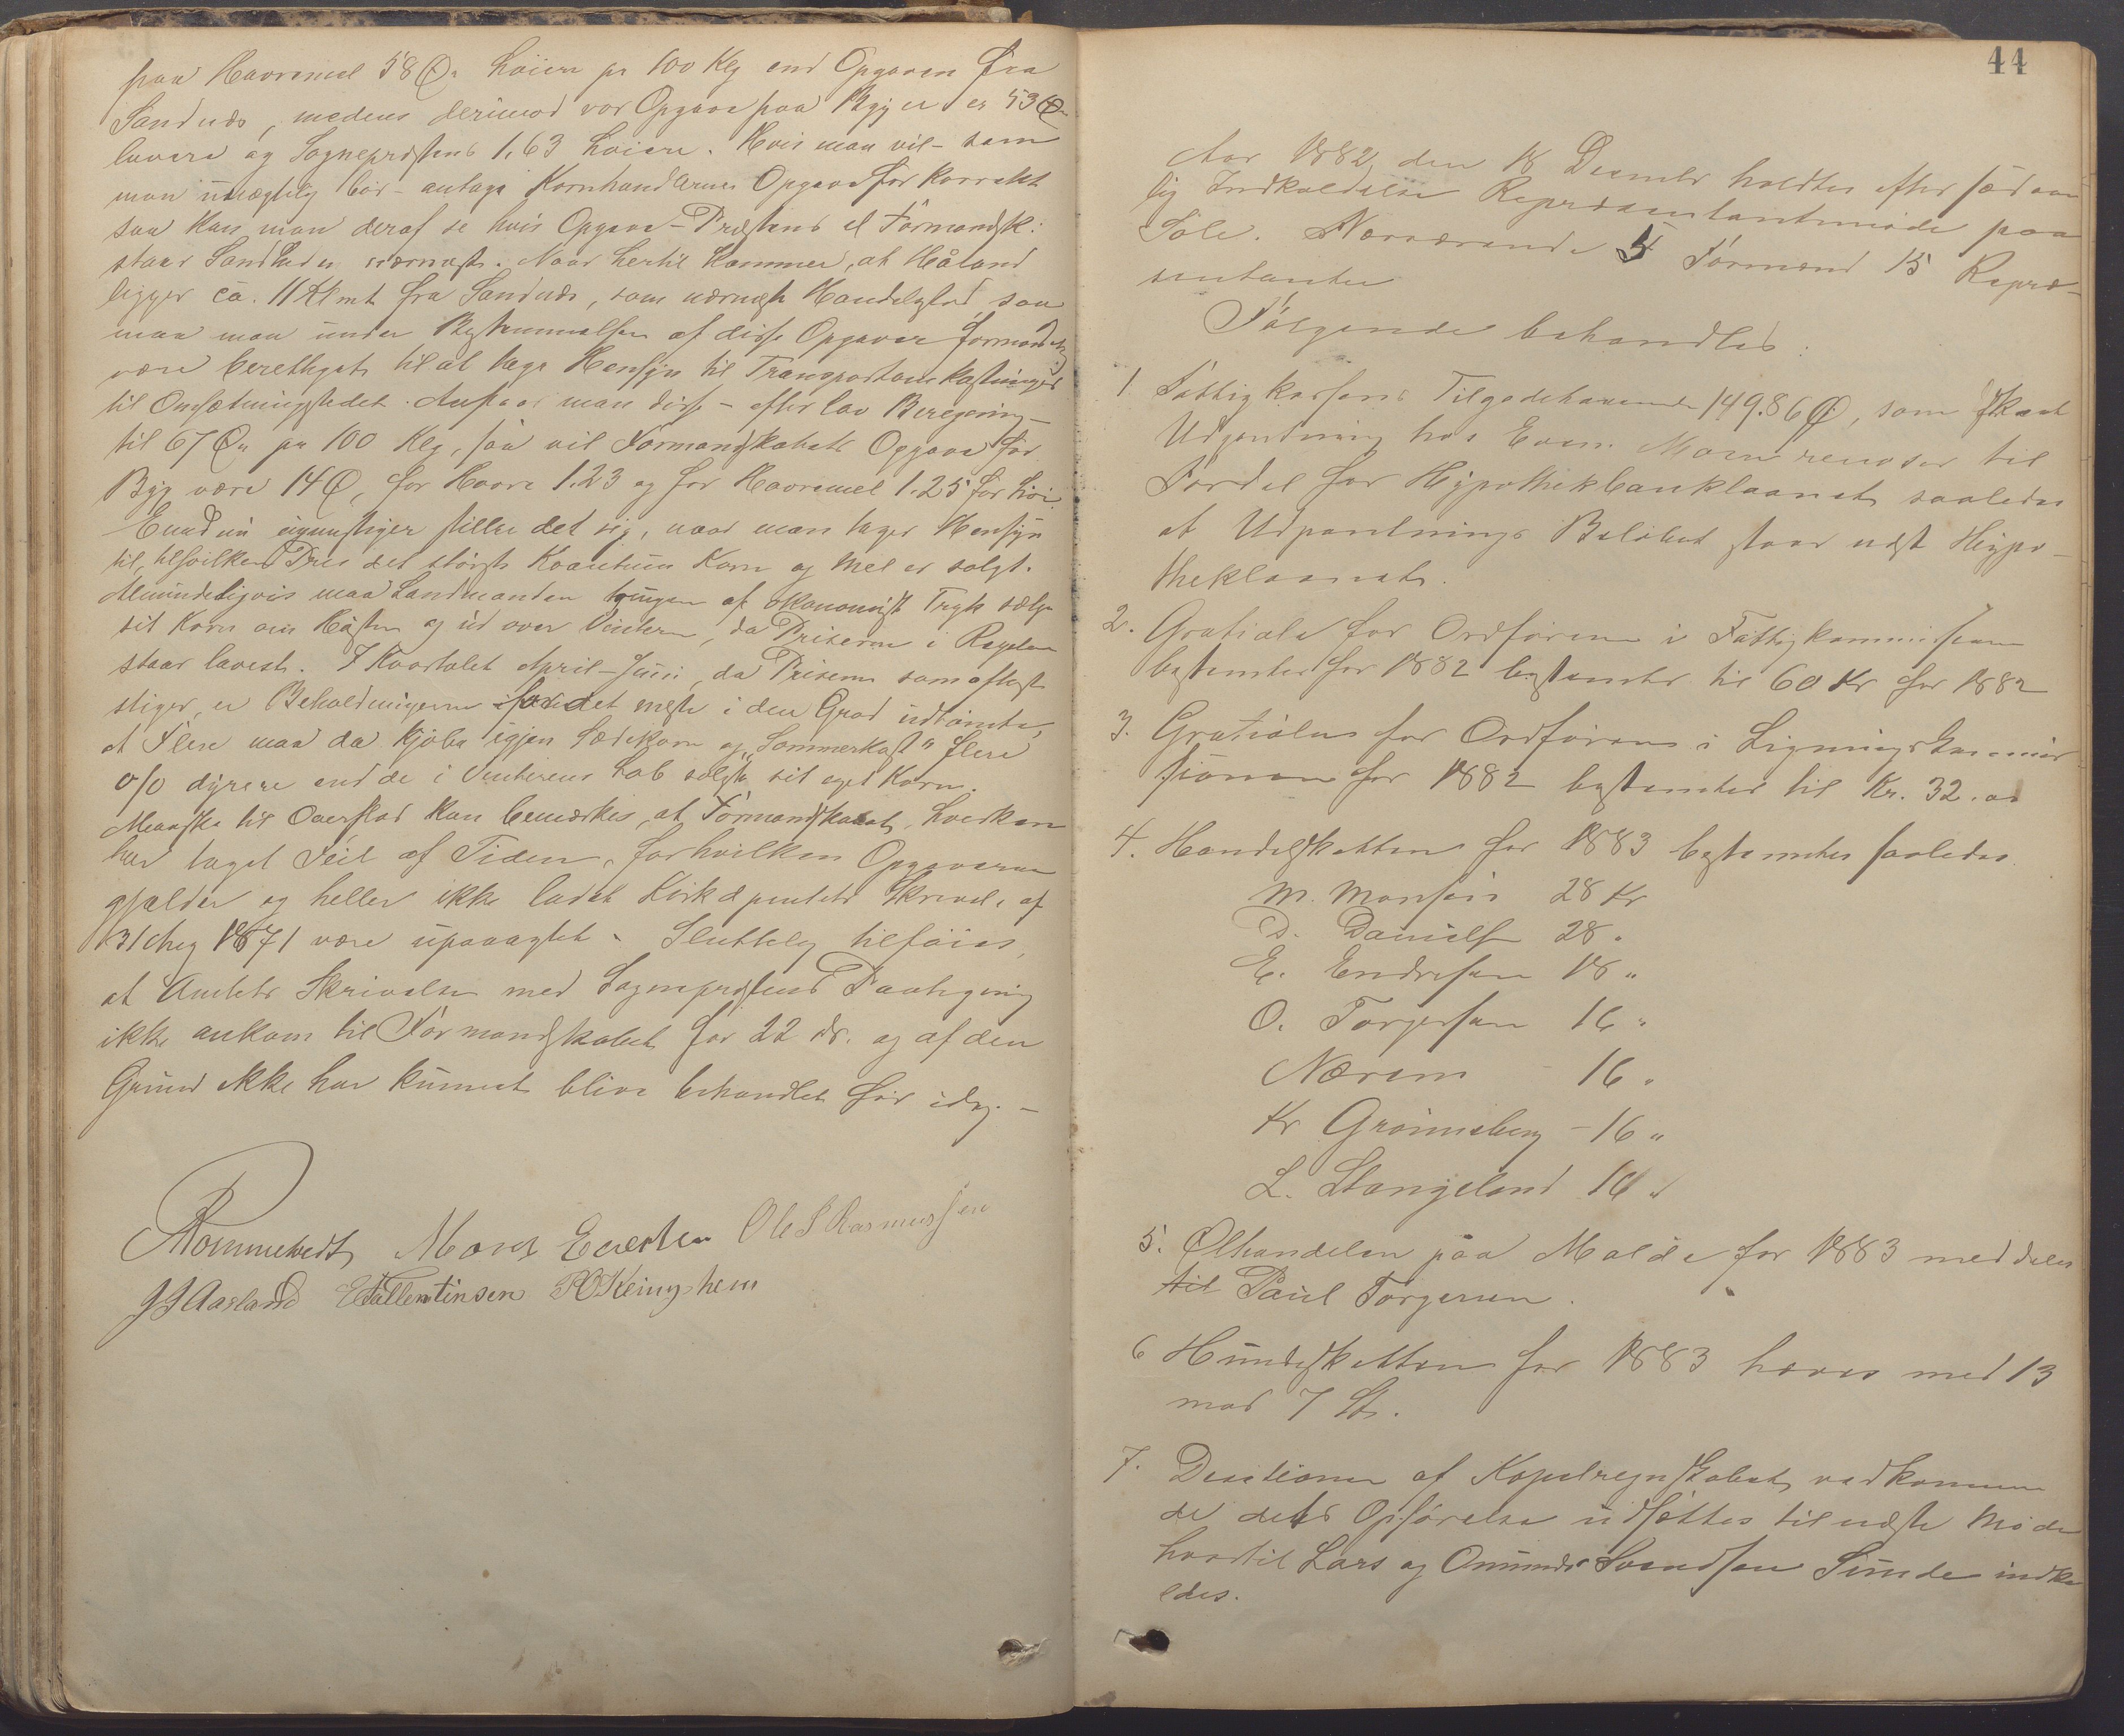 paa Havremel 58 Øre høiere pr 100 Klg end Opgaven fra
Sandnæs, medens derimod vor Opgave paa Byg er 53 Øre
lavere og Sognepræstens 1,63 høiere. Hvis man vil - som
man unægtelig bør - antage Kornhandlernes Opgave for korrekt
saa kan man deraf se hvis Opgave - Præstens el Formandsk:
staar Sandheden nærmest. Naar hertil kommer, at Håland
ligger ca. 11 Klmt fra Sandnæs, som nærmeste Handelssted, saa
maa man under Bestemmelsen af disse Opgaver formodentlig
være berettiget til at tage Hensyn til Transportomkostninger
til Omsætningsstedet. Anslaar man disse - efter lav Beregning -
til 67 Øre pr 100 Klg, saa vil Formandskabets Opgave for
Byg være 14 Ø, for Havre 1.23 og for Havremel 1.25 for høi.
Endnu ugunstiger stiller det sig, naar man tager Hensyn
til, tilhvilken Pris det største Kvantum Korn og Mel er solgt.
Almindeligvis maa Landmanden tvungen af økonomisk Tryk sælge
sit Korn om Høsten og ud over Vinteren, da Priserne i Regelen
staar lavest. I Kvartalet April-Juni, da Priserne som oftest
stiger, er Beholdningerne for det meste i den Grad udtømte,
at Flere maa da kjøbe igjen Sædekorn og "Sommerkost" flere
o/o dyrere end de i Vinterens Løb solgte sit eget Korn.
Meanske til Overflod kan bemærkes, at Formandskabet hverken
har taget Feil af Tiden, for hvilken Opgaverne
gjælder og heller ikke ladet Kirkedpmtets Skrivelse af
31 Aug 1871 være upaaagtet. Sluttelig tilføies,
at Amtets Skrivelse med Sognepræstens Paategning
ikke ankom til Formandskabet før 22 ds. og af den
Grund ikke har kunnet blive behandlet før idag. -
Rommetvedt Ole S Rasmussen
J J Aasland E Tallentinsen P O Reinghem
44
Aar 1882 den 18 Decembr holdtes efter sædvan
lig Indkaldelse Repræsentantmøde paa
Sole. Nærværende 4 Formænd 15 Repræ-
sentanter
Følgende behandled:
1. Fattigkassens Tilgodehavende 149.86 Ø, som
Udpantning hos til
Fordel for Hypothekbanklaanet saaledes
at Udpantnings Beløbet staar næst Hypo-
theklaanet.
2. Gratiale for Ordføreren i Fattigkommissionen
bestemtes for 1882 bestemtes til 60 Kr for 1882
3. Gratialet for Ordføreren i Ligningskommis-
sionen for 1882 bestemtes til Kr. 32.00
4. Handelsskatten for 1883 bestemtes saaledes
M. Monsen 28 Kr
D. Daniels 28 "
E. Endresen 18 "
O. Torgersen 16 "
Nærem - 16 "
Kr Grønnsberg - 16 "
L. Stangeland 16 "
5. Ølhandelen paa Malde for 1883 meddeles
til Paul Torgersen.
6 Hundeskatten for 1883 hæves med 13
mod 7 St.
7. Desitionen af Kapelregnskabet vedkommen
de dets Opførelse udsættes til næste Møde
hvortil Lars og Omund Svendsen Sunde indka
ldes.